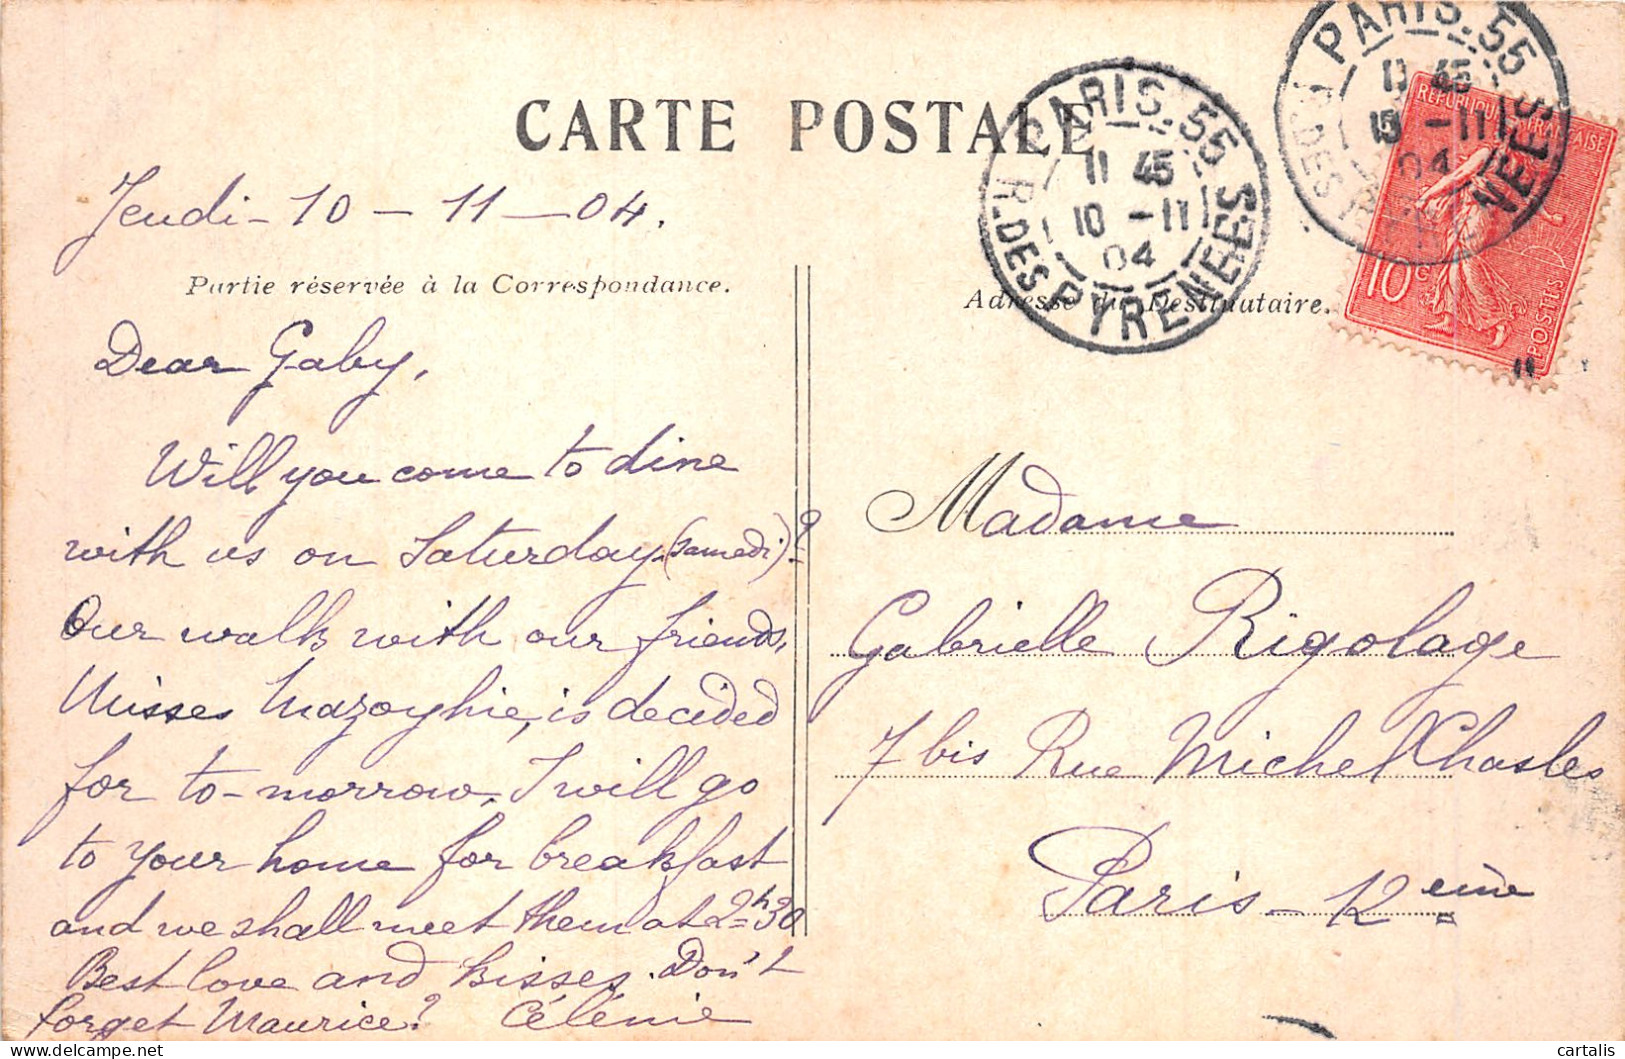 CARTE POSTALE
Jeudi - 10 - 11 - 04.
Partie réservée à la Correspondance.
Dear Gaby,
Will you come to dine
with us on Saturday (samedi)?
Our walk with our friends,
Misses Mazoyhie, is decided
for to-morrow. I will go
to your home for breakfast
and we shall meet them at 2h30
Best love and kisses. Don't
forget Maurice? Célénie
PARIS.55
11 45
10 -11
04
R.DES PYRENEES
PARIS.55
11 45
10 -11
04
R.DES PYRENEES
REPUBLIQUE FRANÇAISE
10c
POSTES
Adresse du Destinataire.
Madame
Gabrielle Rigolage
7 bis Rue Michel Chasles
Paris - 12eme
cartalis
delcampe.net